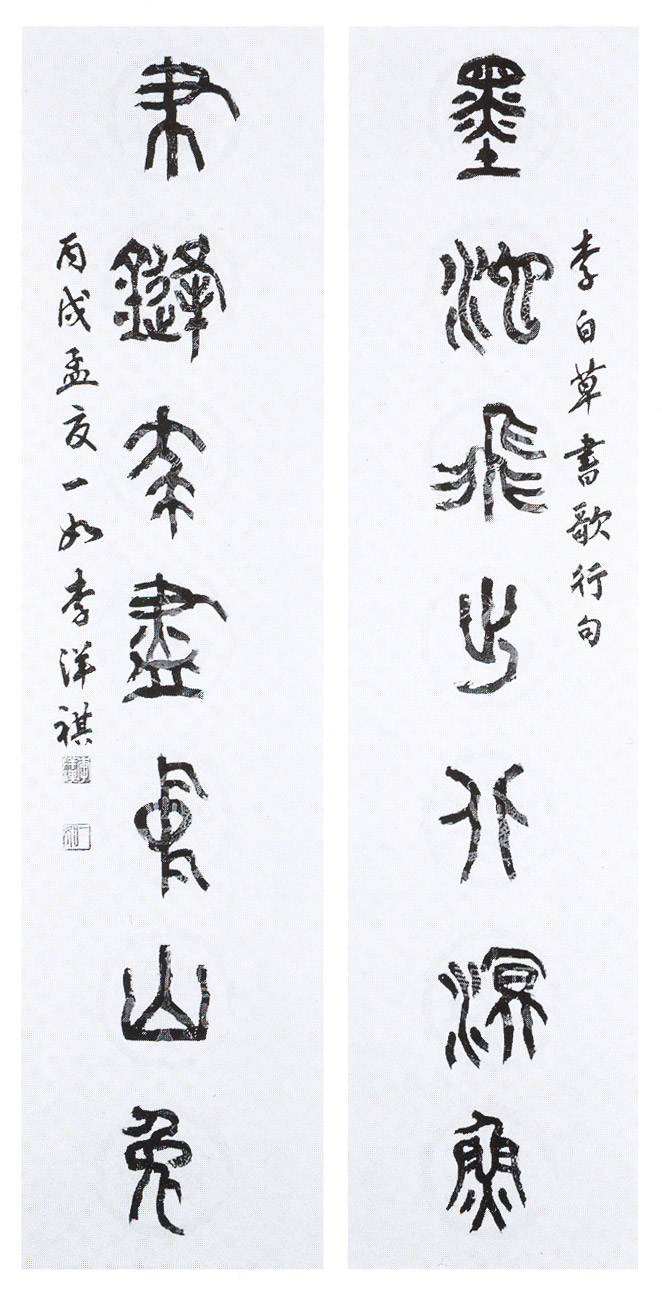 李白草書歌行句
墨池飛出北溟魚
筆鏠殺盡中山兔
丙戌孟夏一如李洋祺